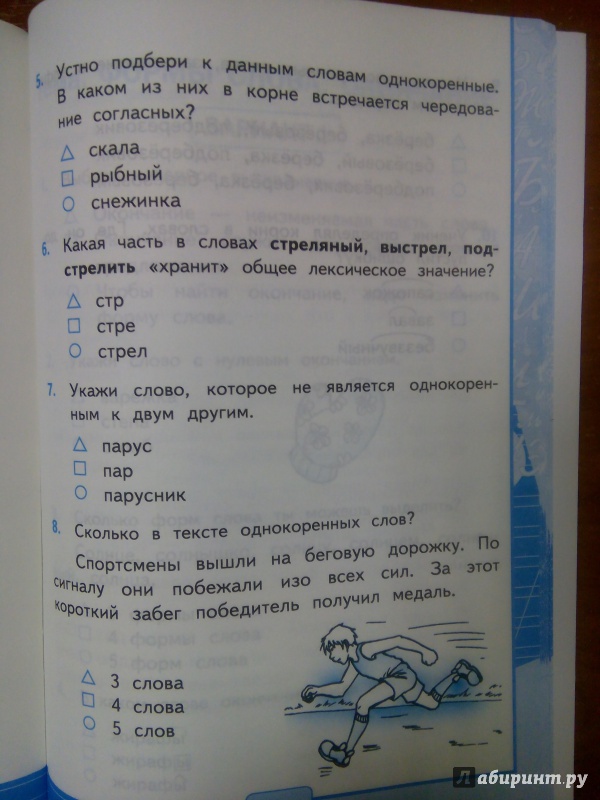 5. Устно подбери к данным словам однокоренные.
В каком из них в корне встречается чередова-
ние согласных?
скала
рыбный
снежинка
6. Какая часть в словах стреляный, выстрел, под-
стрелить «хранит» общее лексическое значение?
стр
стре
стрел
7. Укажи слово, которое не является однокорен-
ным к двум другим.
парус
пар
парусник
8. Сколько в тексте однокоренных слов?
Спортсмены вышли на беговую дорожку. По
сигналу они побежали изо всех сил. За этот
короткий забег победитель получил медаль.
3 слова
4 слова
5 слов
лабиринт.ру